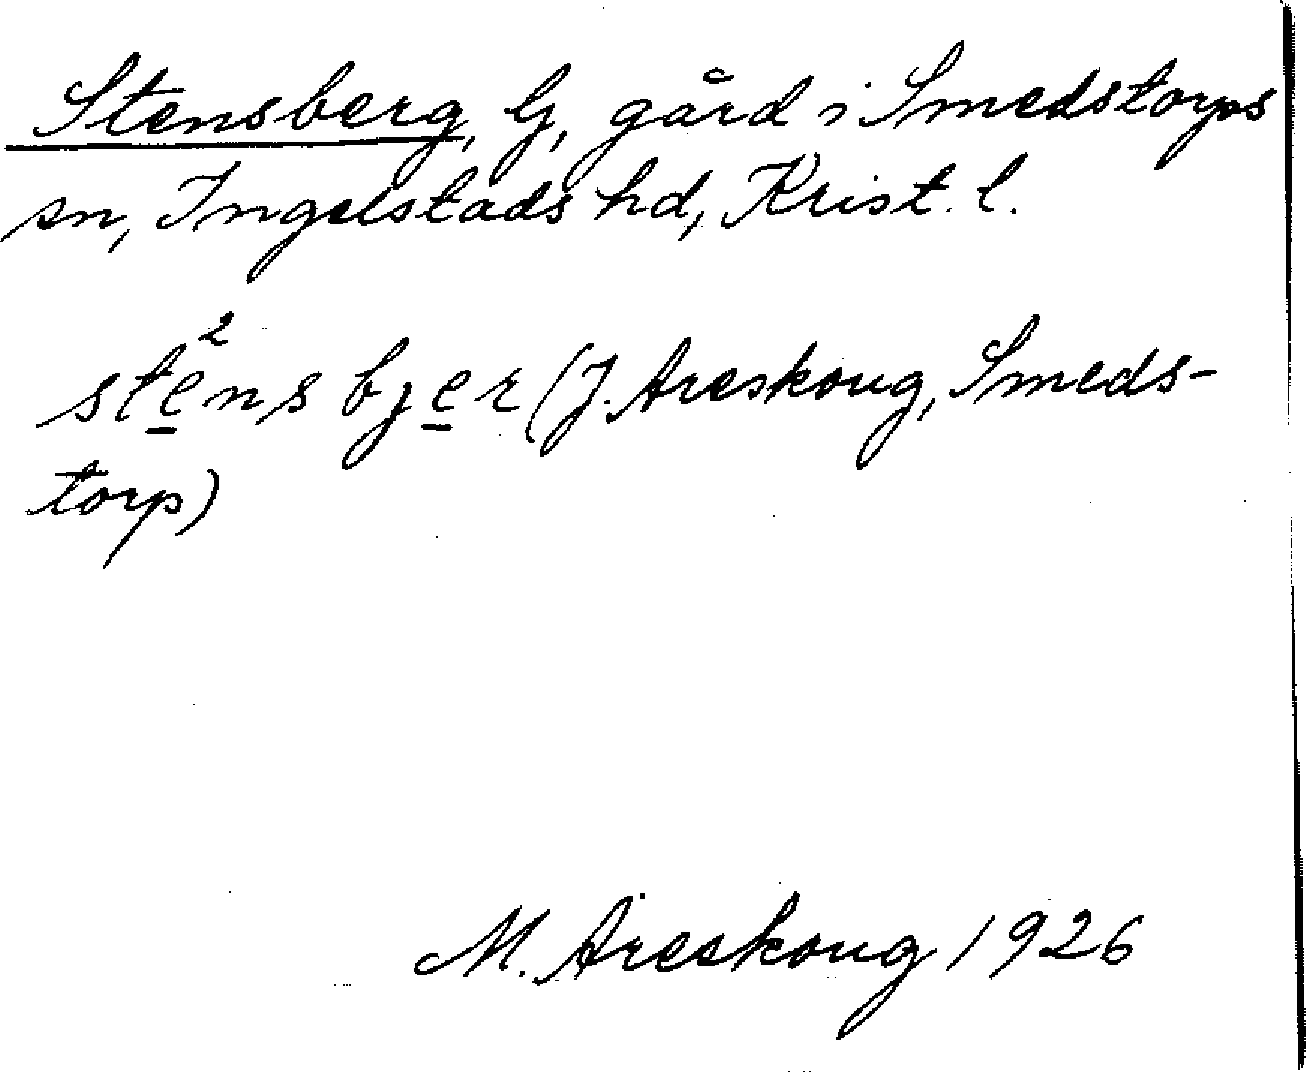 Stensberg, G, gård i Smedstorps
sn, Ingelstads hd, Krist. l.
ste̲²ns bje̲r (J. Areskoug, Smeds-
torp)
M. Areskoug 1926